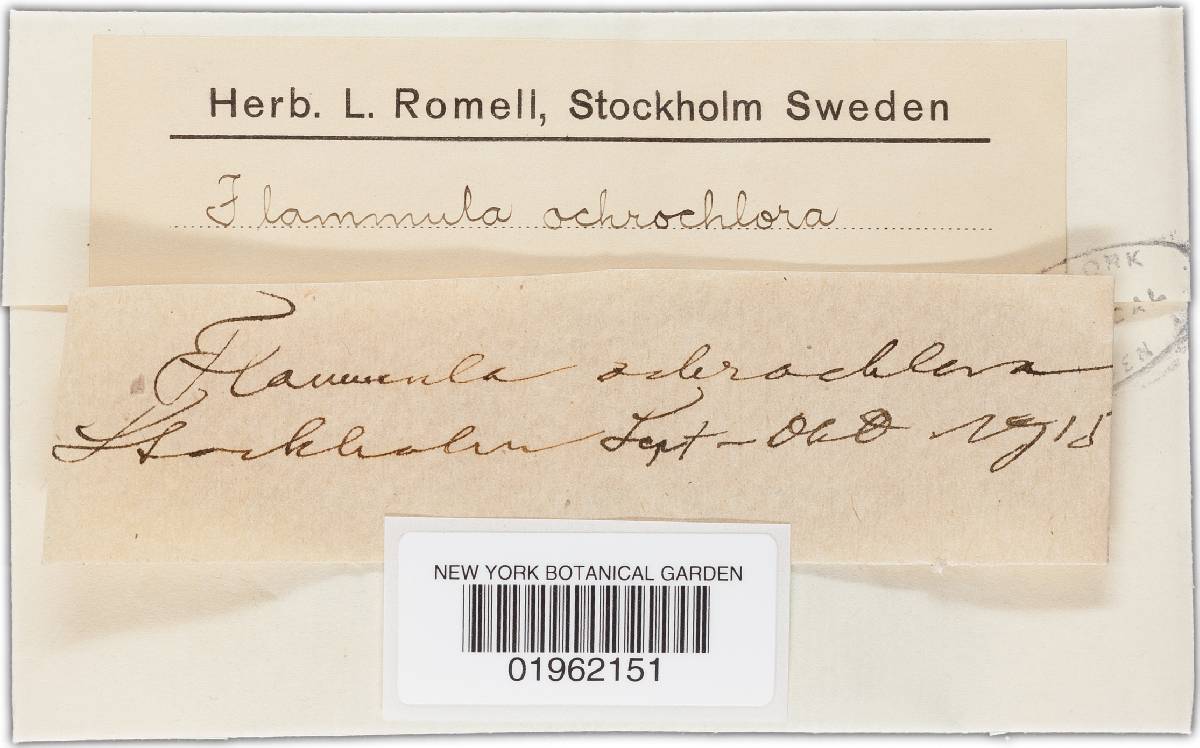 Herb. L. Romell, Stockholm Sweden
Flammula ochrochlora
ORK
CAL
EN
Flammula ochrochlora
Stockholm Sept - Okt 1915
NEW YORK BOTANICAL GARDEN
01962151